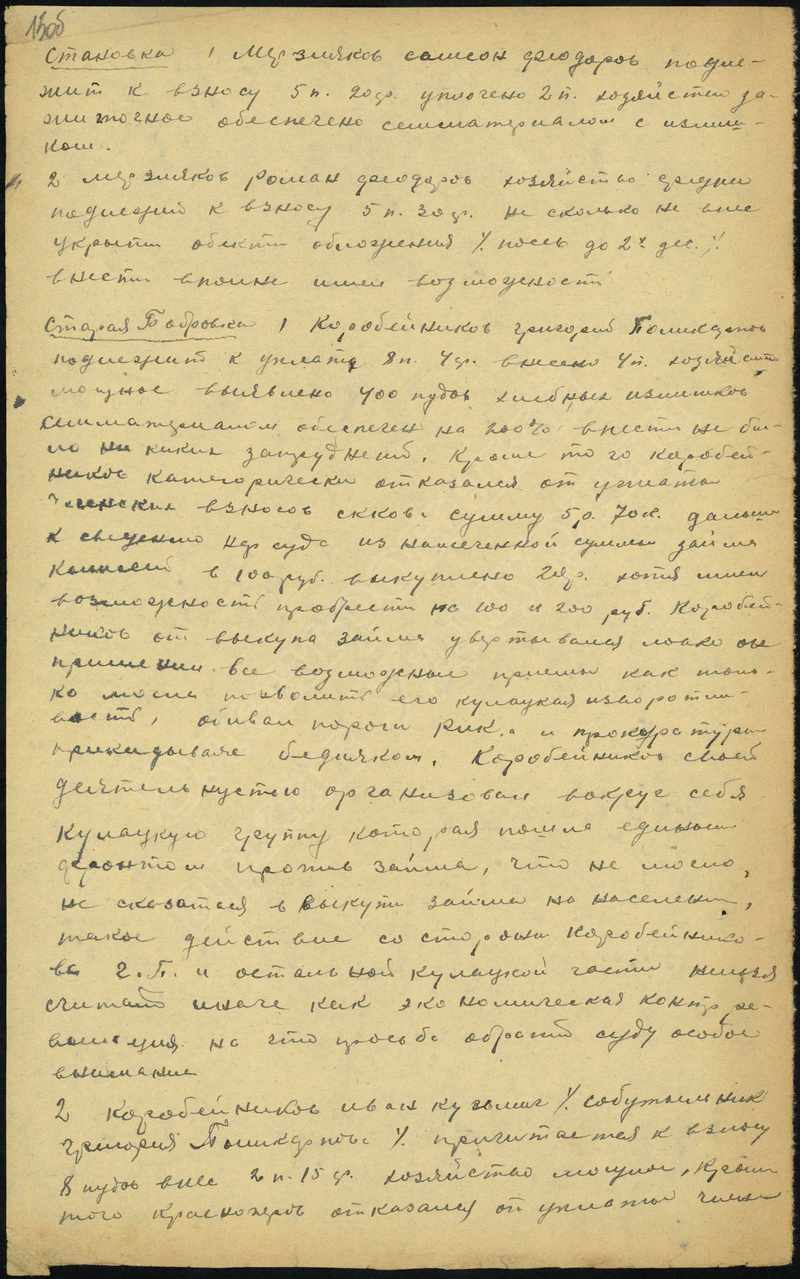 13об
Становка 1 Мерзляков самсон феодоров подле-
жит к взносу 5 п. 20 ф. уплочено 2 п. хозяйство за-
житочное обеспечено семматериалом с излиш-
ком.
2 Мерзляков роман феодоров хозяйство средни
подлежит к взносу 5 п. 30 ф. не сколько не внес
укрыти обекти обложения % посев до 2х дес. %
внести вполне имел возможность
Старая Бобровка 1 Коробейников григорий Поликарпов
подлежит к уплате 8 п. 4 ф. внесено 4 п. хозяйств
мощное выявлено 400 пудов хлебных излишков
семматериалом обеспечен на 200% внести не бы-
ло ни каких затруднений, кроме то го коробей-
ников категорически отказался от уплаты
членских взносов скков. сумму 5 р. 70 к. дальше
к сведению нар суда из намеченной суммы займа
в 100 руб. выкуплено 2 обр. хотя имел
возможность пробрести на 100 и 200 руб. Коробей-
ников от выкупа займа увертывался ловко он
применил все возможные приемы как толь-
ко могла позволить его кулацкая изворотли-
вость, обивал пороги Рик. и прокуратуры
прикидывале бедняком. Коробейников своей
деятельнустью организовал вокруг себя
кулацкую группу которая пошла единым
фронтом против займа, что не могло
не сказаться в выкупи займа на населени,
такое действие со стороны коробейнико-
ва Г. П. и остальной кулацкой части нельзя
считать иначе как экономическая контр ре-
волюция на что прозьба обратить суду особое
внимание
2 коробейников иван кузьмич % собутыльник
григория Поликарпова % причитается к взносу
8 пудов внес 2 п. 15 ф. хозяйство мощное, кроме
того отказался от уплаты член